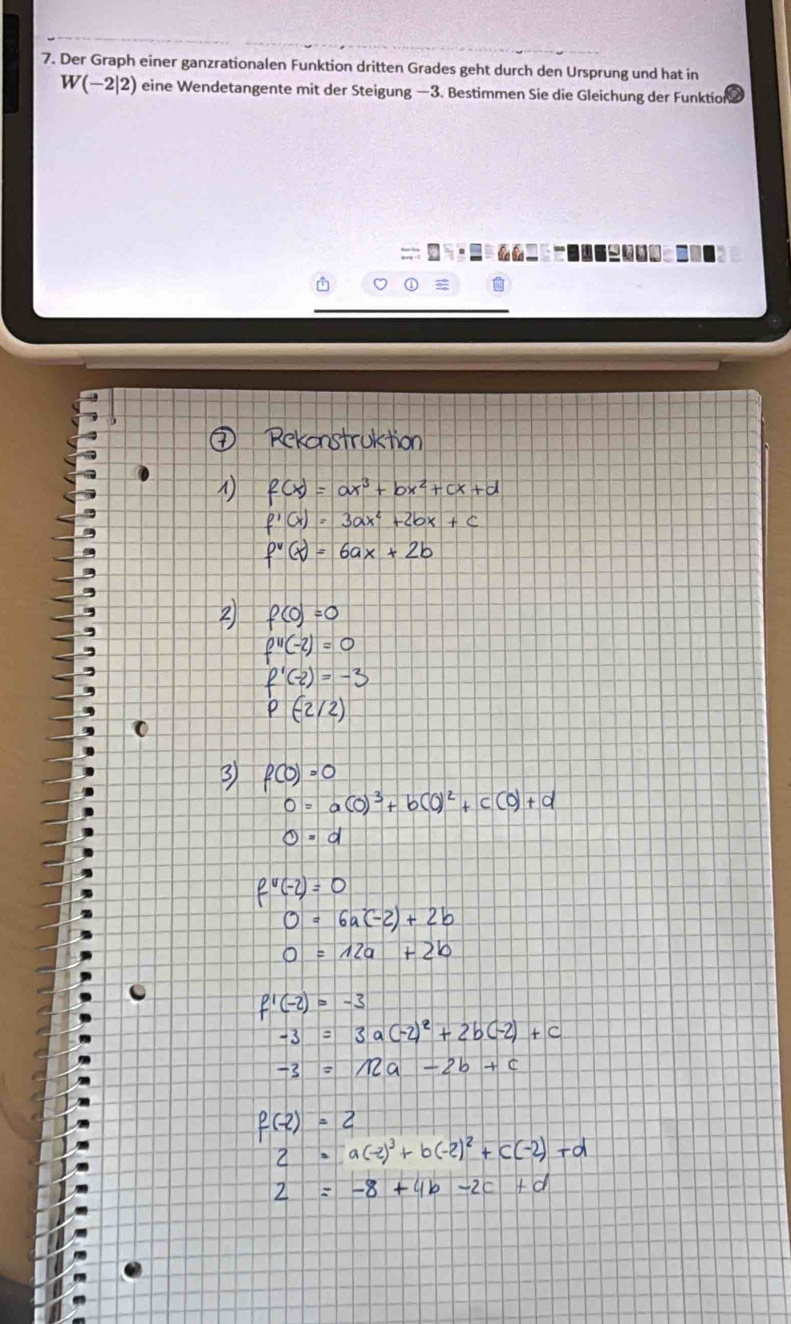 7. Der Graph einer ganzrationalen Funktion dritten Grades geht durch den Ursprung und hat in
W(−2|2) eine Wendetangente mit der Steigung −3. Bestimmen Sie die Gleichung der Funktion
⑦ Rekonstruktion
1) f(x) = ax³ + bx² + cx + d
f'(x) = 3ax² + 2bx + c
f"(x) = 6ax + 2b
2) f(0) = 0
f"(-2) = 0
f'(-2) = -3
P (-2/2)
3) f(0) = 0
0 = a(0)³ + b(0)² + c(0) + d
0 = d
f"(-2) = 0
0 = 6a(-2) + 2b
0 = 12a + 2b
f'(-2) = -3
-3 = 3a(-2)² + 2b(-2) + c
-3 = 12a - 2b + c
f(-2) = 2
2 = a(-2)³ + b(-2)² + c(-2) + d
2 = -8 + 4b - 2c + d